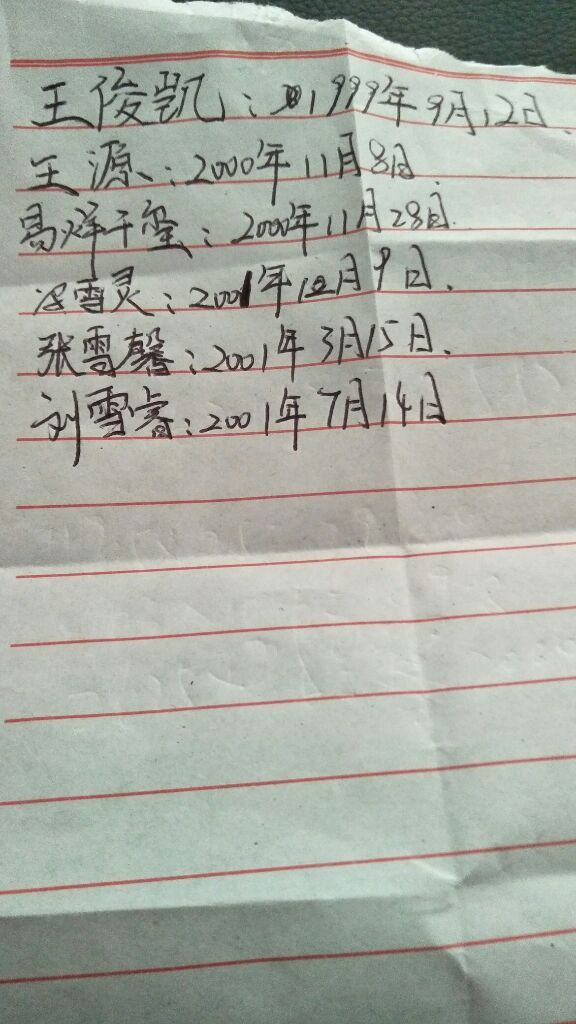 王俊凯：1999年9月12日.
王源：2000年11月8日
易烊千玺：2000年11月28日.
雪灵：2001年12月9日.
张雪馨：2001年3月15日.
刘雪睿：2001年7月14日